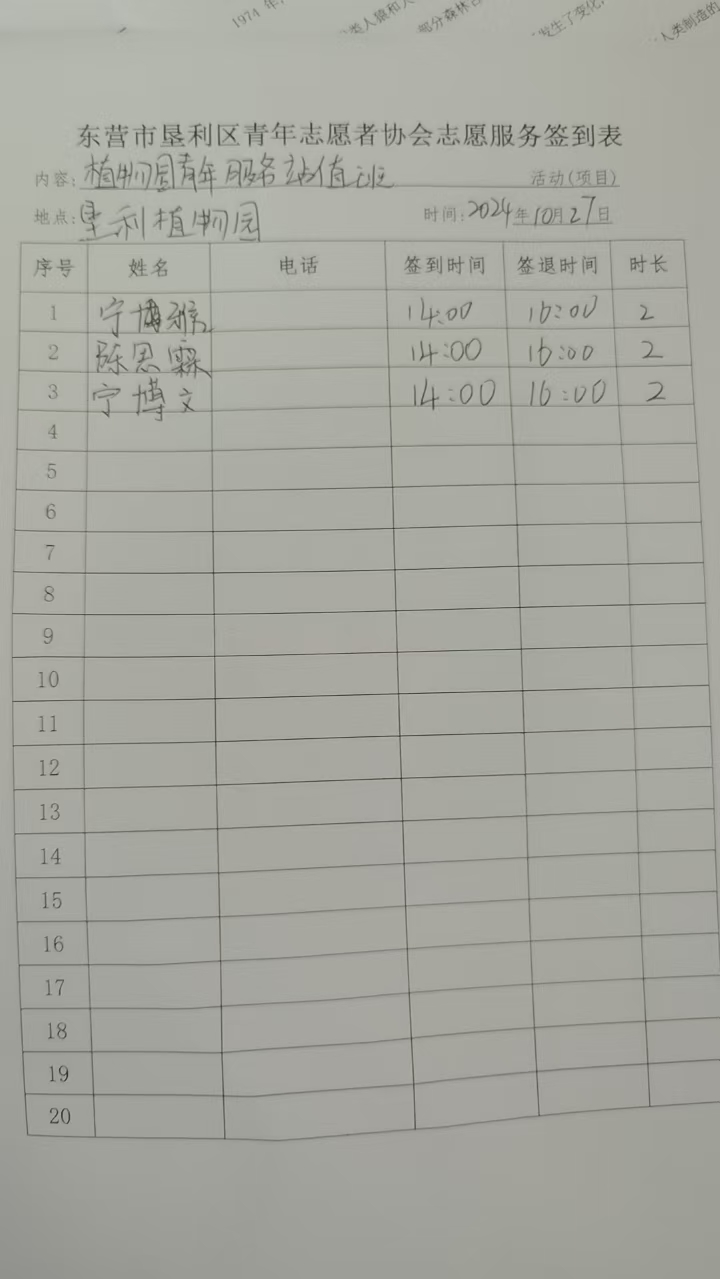 1974 年,
类人猿和人
部分森林
发生了变化,
人类制造的
东营市垦利区青年志愿者协会志愿服务签到表
内容: 植物园青年服务站值班 活动(项目)
地点: 垦利植物园 时间: 2024年10月27日
序号 姓名 电话 签到时间 签退时间 时长
1 宁博 14:00 16:00 2
2 陈思霖 14:00 16:00 2
3 宁博文 14:00 16:00 2
4
5
6
7
8
9
10
11
12
13
14
15
16
17
18
19
20